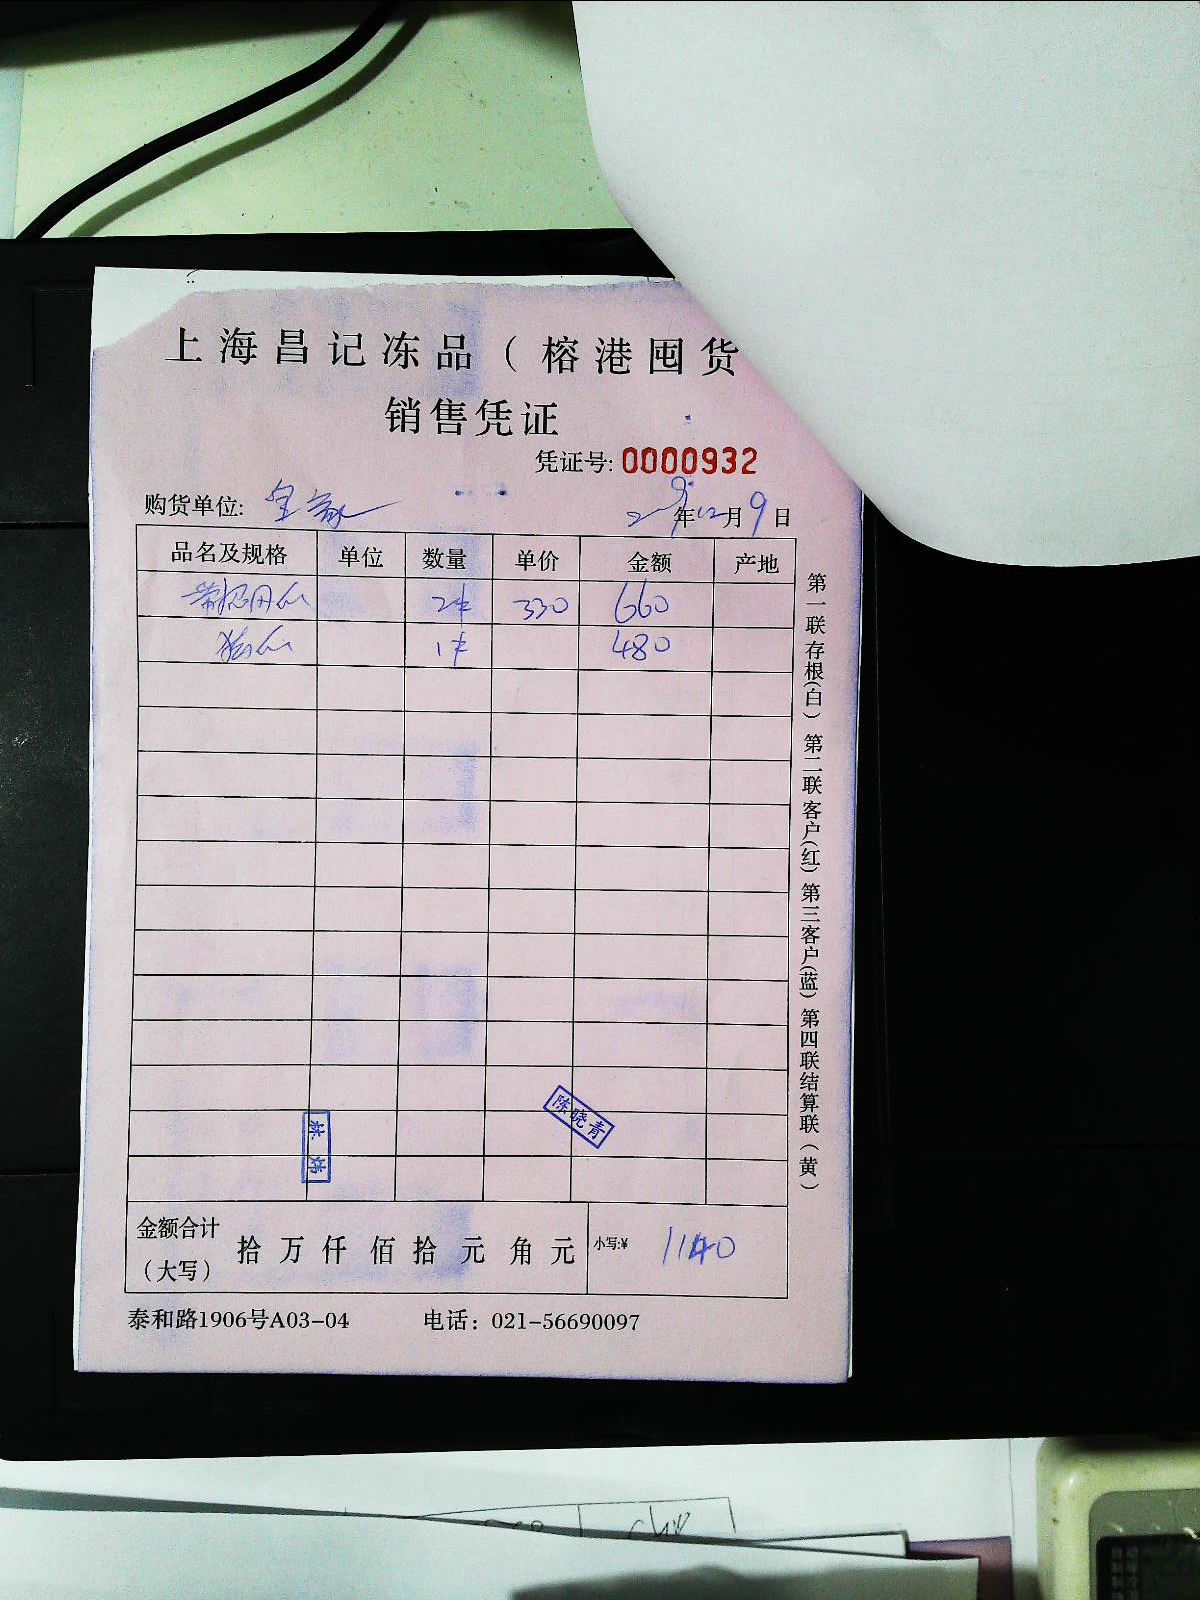 上海昌记冻品（榕港囤货
销售凭证
凭证号: 0000932
购货单位:
年12月9日
品名及规格 单位 数量 单价 金额 产地
2件 330 660
1件 480
金额合计（大写） 拾 万 仟 佰 拾 元 角 元 小写:¥ 1140
泰和路1906号A03-04 电话：021-56690097
第一联存根（白）第二联客户（红）第三客户（蓝）第四联结算联（黄）
陈晓青